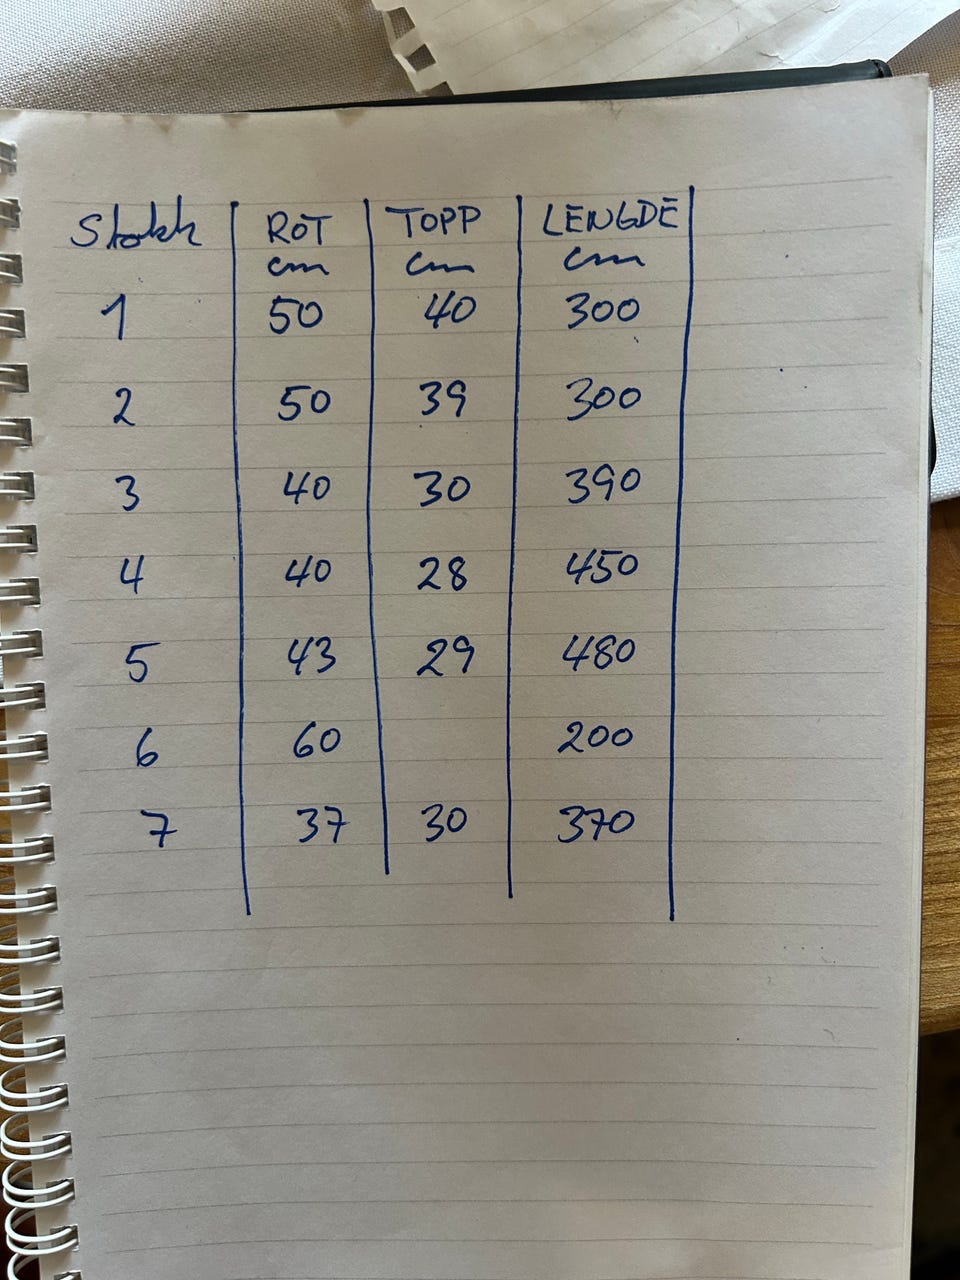 Stokk ROT TOPP LENGDE
cm cm cm
1 50 40 300
2 50 39 300
3 40 30 390
4 40 28 450
5 43 29 480
6 60 200
7 37 30 370